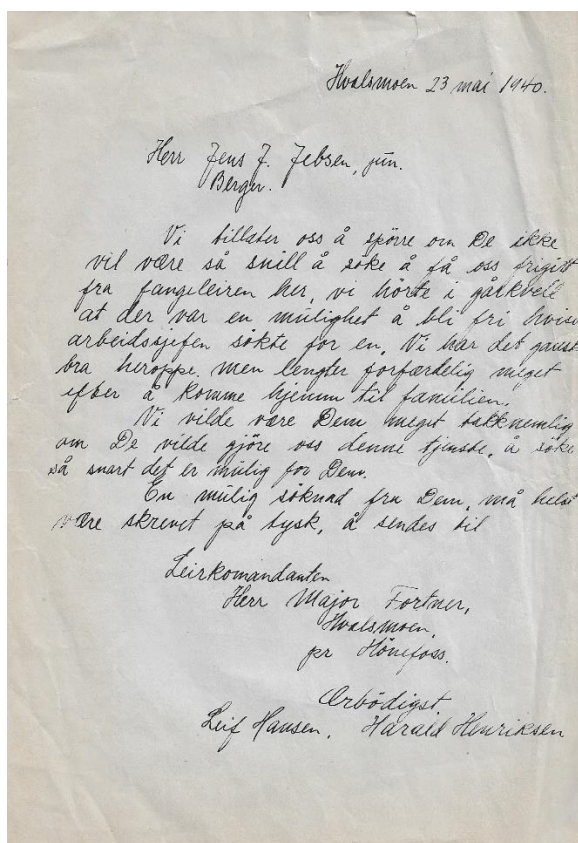 Hvalsmoen 23 mai 1940.
Herr Jens J. Jebsen, jun.
Berger.
Vi tillater oss å spörre om De ikke
vil være så snill å söke å få oss frigitt
fra fangeleiren her, vi hörte i gårkvell
at der var en mulighet å bli fri hvis
arbeidssjefen sökte for en, Vi har det ganske
bra heroppe, men lengter forfærdelig meget
efter å komme hjemm til familien.
Vi vilde være Dem meget takknemlig
om De vilde gjöre oss denne tjenste, å söke
så snart det er mulig for Dem.
En mulig söknad fra Dem, må helst
være skrevet på tysk, å sendes til
Leirkomandanten
Herr Major Fortner,
Hvalsmoen,
pr Hönefoss.
Örbödigst.
Leif Hansen, Harald Henriksen